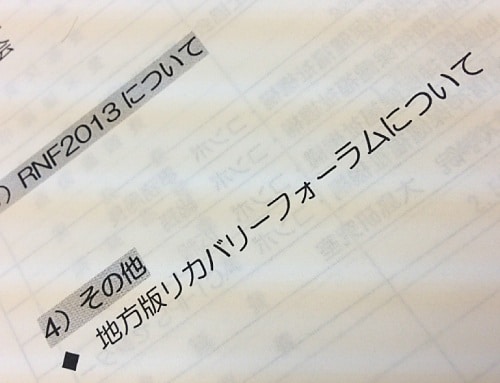 ) RNF2013について
4) その他
◆ 地方版リカバリーフォーラムについて